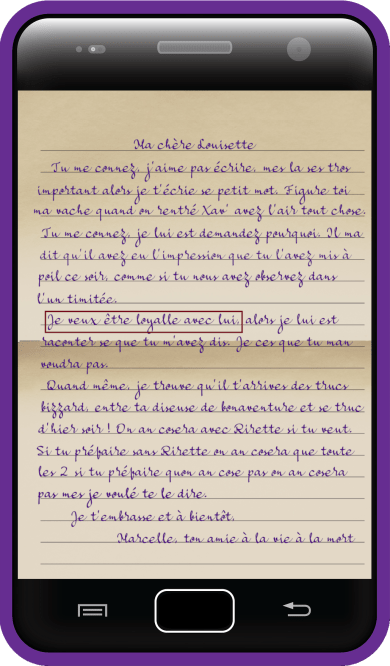 Ma chère Louisette
Tu me connez, j'aime pas écrire, mes la ses trop
important alors je t'écrie se petit mot. Figure toi
ma vache quand on rentré Xav' avez l'air tout chose.
Tu me connez, je lui est demandez pourquoi. Il ma
dit qu'il avez eu l'impression que tu l'avez mis à
poil ce soir, comme si tu nous avez observez dans
l'un timitée.
Je veux être loyalle avec lui, alors je lui est
raconter se que tu m'avez dis. Je ces que tu man
voudra pas.
Quand même, je trouve qu'il t'arrives des trucs
bizzard, entre ta diseuse de bonaventure et se truc
d'hier soir ! On an cosera avec Rirette si tu veut.
Si tu préfaire sans Rirette on an cosera que toute
les 2 si tu préfaire quon an cose pas on an cosera
pas mes je voulé te le dire.
Je t'embrasse et à bientôt,
Marcelle, ton amie à la vie à la mort